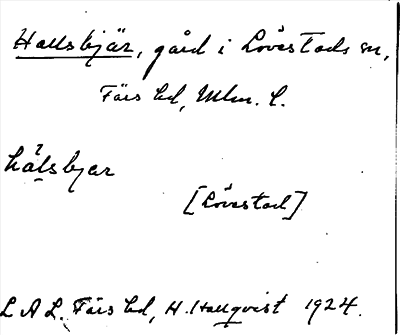 Hallsbjär, gård i Lövestads sn,
Färs hd, Mlm. l.
hålsbjar
[Lövestad]
L A L. Färs hd, H. Hallqvist 1924.